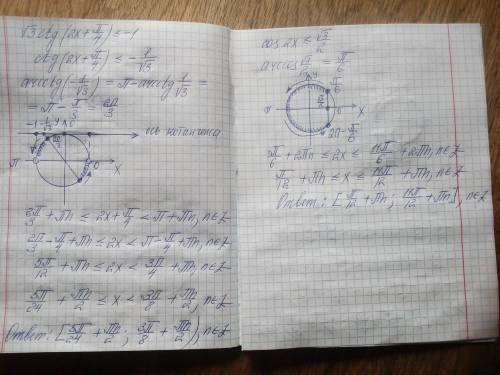 √3 ctg(2x+π/4) ≤ -1
ctg(2x+π/4) ≤ -1/√3
arcctg(-1/√3) = π - arcctg 1/√3 =
= π - π/3 = 2π/3
-1 -1/√3 y 0
ось котангенса
π 0 X
2π/3 + πn ≤ 2x+π/4 < π + πn, n∈Z
2π/3 - π/4 + πn ≤ 2x < π - π/4 + πn, n∈Z
5π/12 + πn ≤ 2x < 3π/4 + πn, n∈Z
5π/24 + πn/2 ≤ x < 3π/8 + πn/2, n∈Z
Ответ: [5π/24 + πn/2; 3π/8 + πn/2), n∈Z
cos 2x ≤ √3/2
arccos √3/2 = π/6
y π/6
π 0 X
2π-π/6
π/6 + 2πn ≤ 2x ≤ 11π/6 + 2πn, n∈Z
π/12 + πn ≤ x ≤ 11π/12 + πn, n∈Z
Ответ: [π/12 + πn; 11π/12 + πn], n∈Z